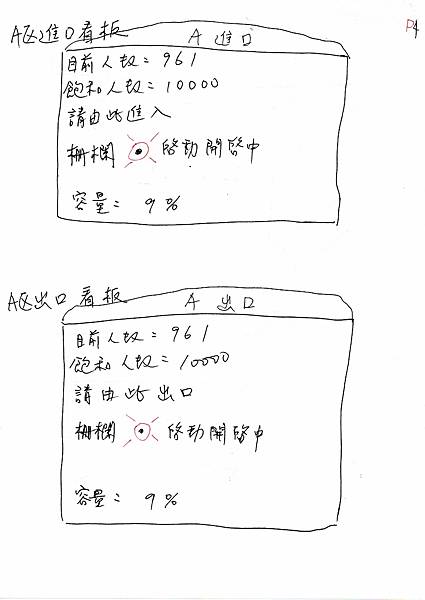 P4
A区進口看板
A 進口
目前人数=961
飽和人数=10000
請由此進入
柵欄 啓動開啓中
容量= 9%
A区出口看板
A 出口
目前人数=961
飽和人数=10000
請由此出口
柵欄 啓動開啓中
容量= 9%